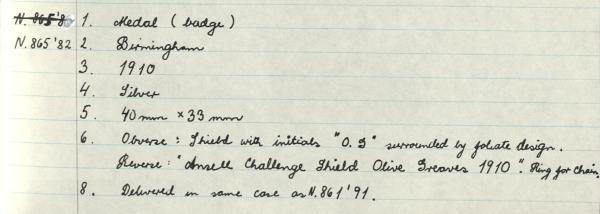 N. 865'8 1. Medal (badge)
N.865'82 2. Birmingham
3. 1910
4. Silver
5. 40mm × 33mm
6. Obverse: Shield with initials "O.G" surrounded by foliate design.
Reverse: "Ansell Challenge Shield Olive Greaves 1910". Ring for chain.
8. Delivered in same case as N.861'91.